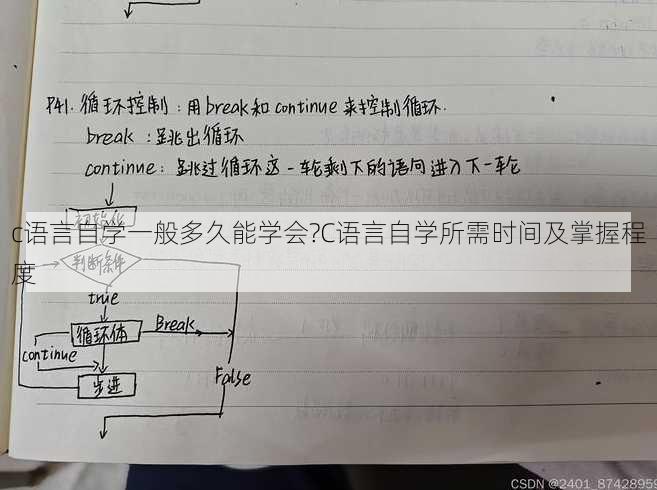 P41. 循环控制：用break和continue来控制循环.
break：跳出循环
continue：跳过循环这一轮剩下的语句进入下一轮
初始化
c语言自学一般多久能学会?C语言自学所需时间及掌握程
度
判断条件
true
循环体 Break
continue
False
步进
CSDN @2401_87428959